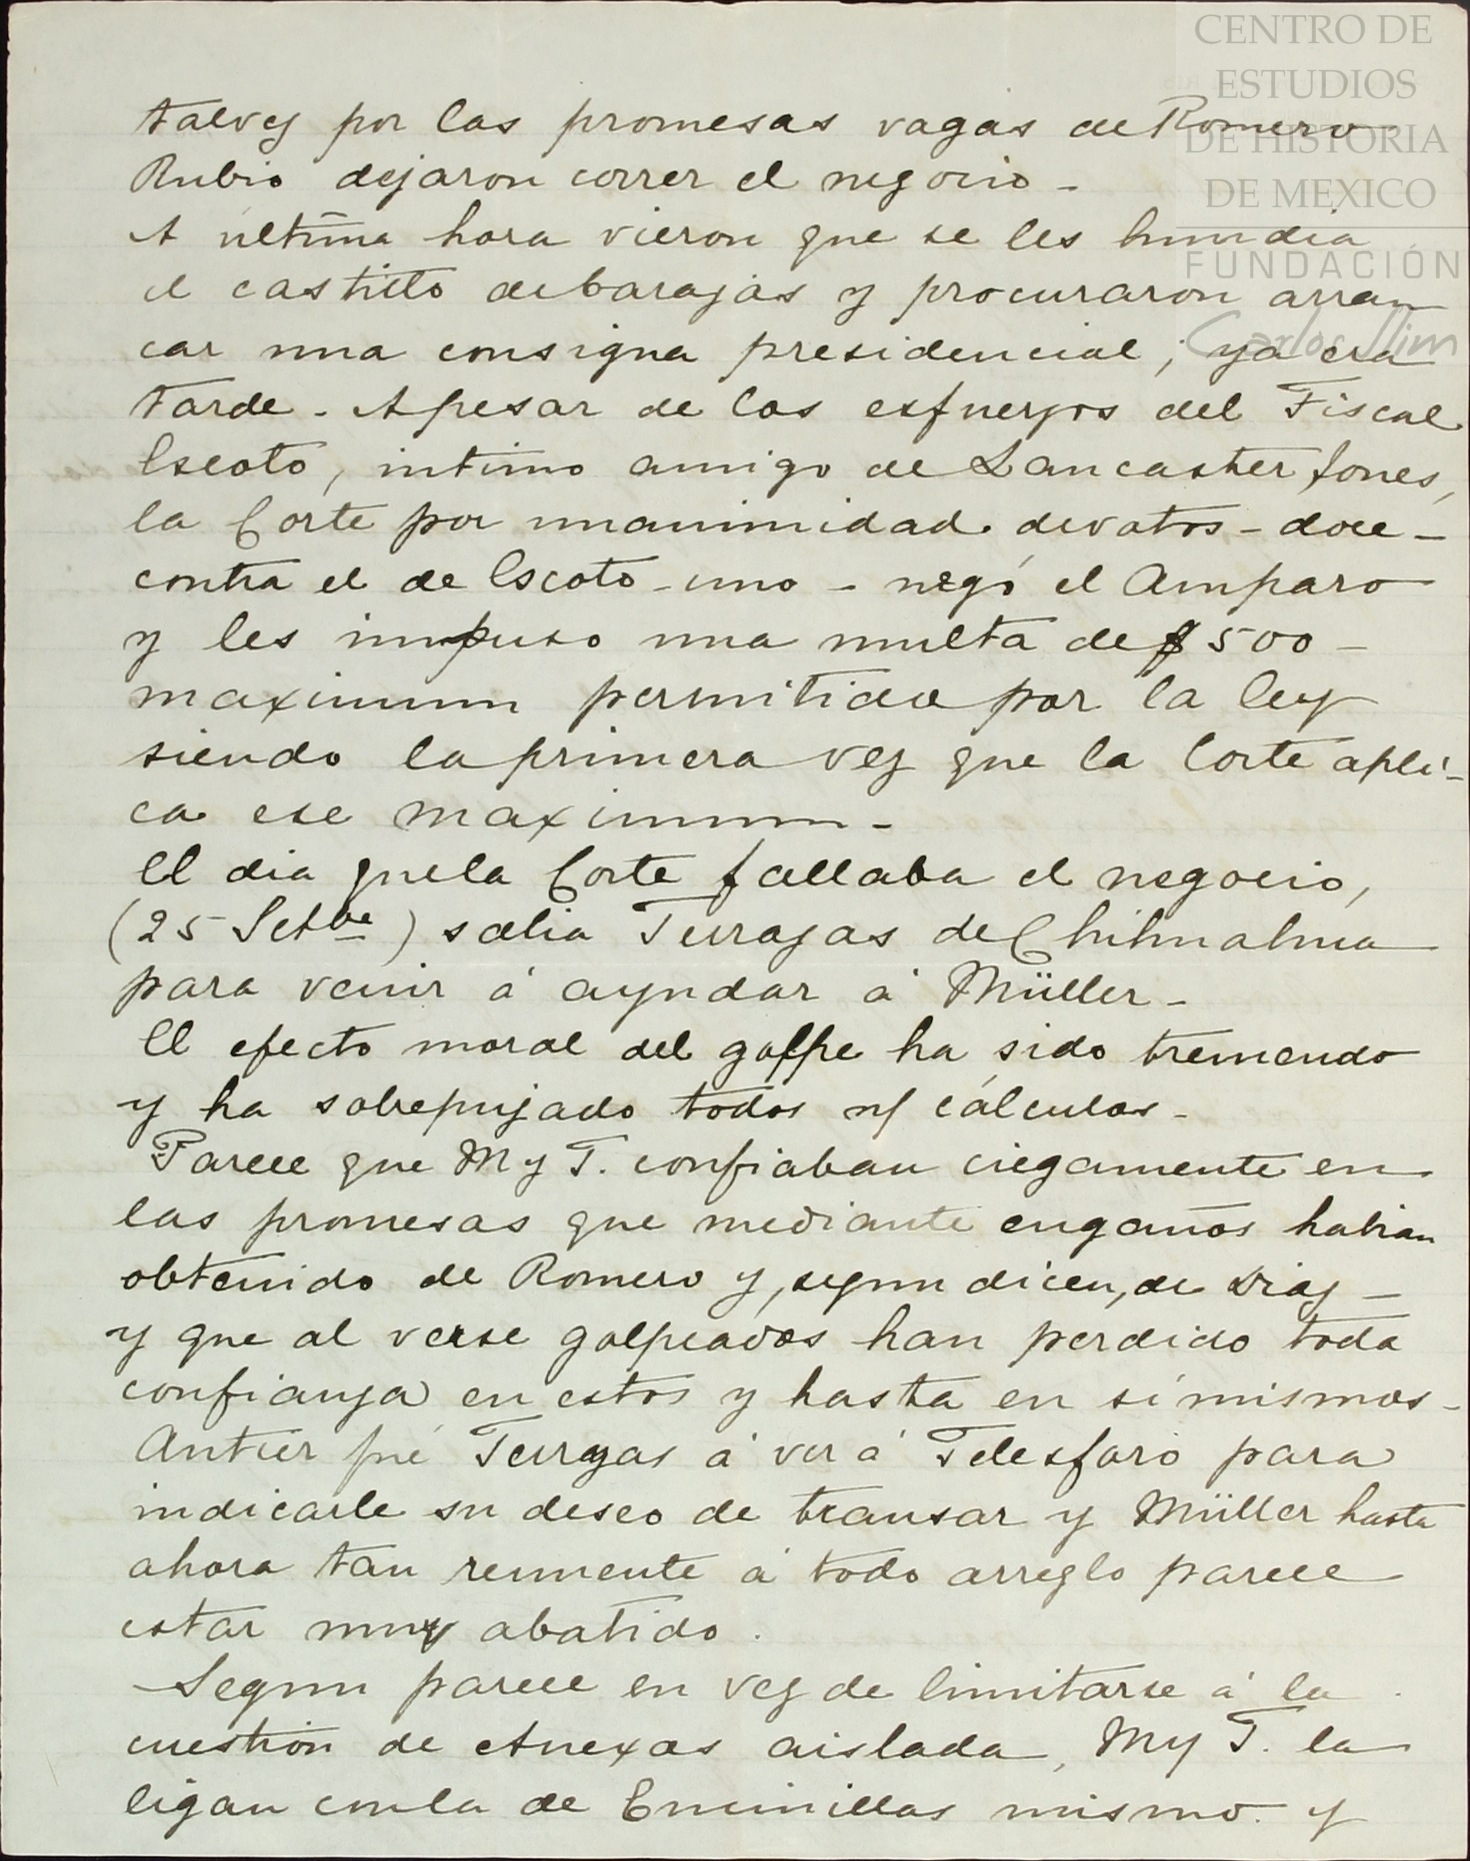 CENTRO DE
ESTUDIOS
DE HISTORIA
DE MEXICO
FUNDACIÓN
Carlos Slim
talvez por las promesas vagas de Romero
Rubio dejaron correr el negocio -
A ultima hora vieron que se les hundia
el castillo de barajas y procuraron arran
car una consigna presidencial; ya era
tarde - Apesar de los esfuerzos del Fiscal
Escoto, intimo amigo de Lancaster Jones,
la Corte por unanimidad de votos - doce -
contra el de Escoto - uno - negó el Amparo
y les impuso una multa de $ 500 -
maximum permitido por la ley
siendo la primera vez que la Corte apli-
ca ese maximum -
El dia que la Corte fallaba el negocio,
(25 Setbe) salia Terrazas de Chihuahua
para venir á ayudar á Müller -
El efecto moral del golpe ha sido tremendo
y ha sobrepujado todos cálculos -
Parece que M y T. confiaban ciegamente en
las promesas que mediante engaños habian
obtenido de Romero y, segun dicen, de Diaz -
y que al verse golpeados han perdido toda
confianza en estos y hasta en sí mismos -
Antier fué Terrazas á ver á Telesforo para
indicarle su deseo de transar y Müller hasta
ahora tan renuente á todo arreglo parece
estar muy abatido.
Segun parece en vez de limitarse á la
cuestion de Anexas aislada, M y T. la
ligan con la de Encinillas mismo y